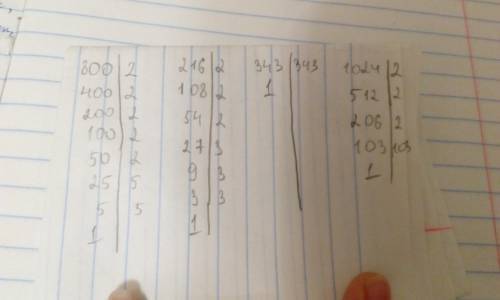 800 | 2
400 | 2
200 | 2
100 | 2
50 | 2
25 | 5
5 | 5
1
216 | 2
108 | 2
54 | 2
27 | 3
9 | 3
3 | 3
1
343 | 343
1
1024 | 2
512 | 2
206 | 2
103 | 103
1